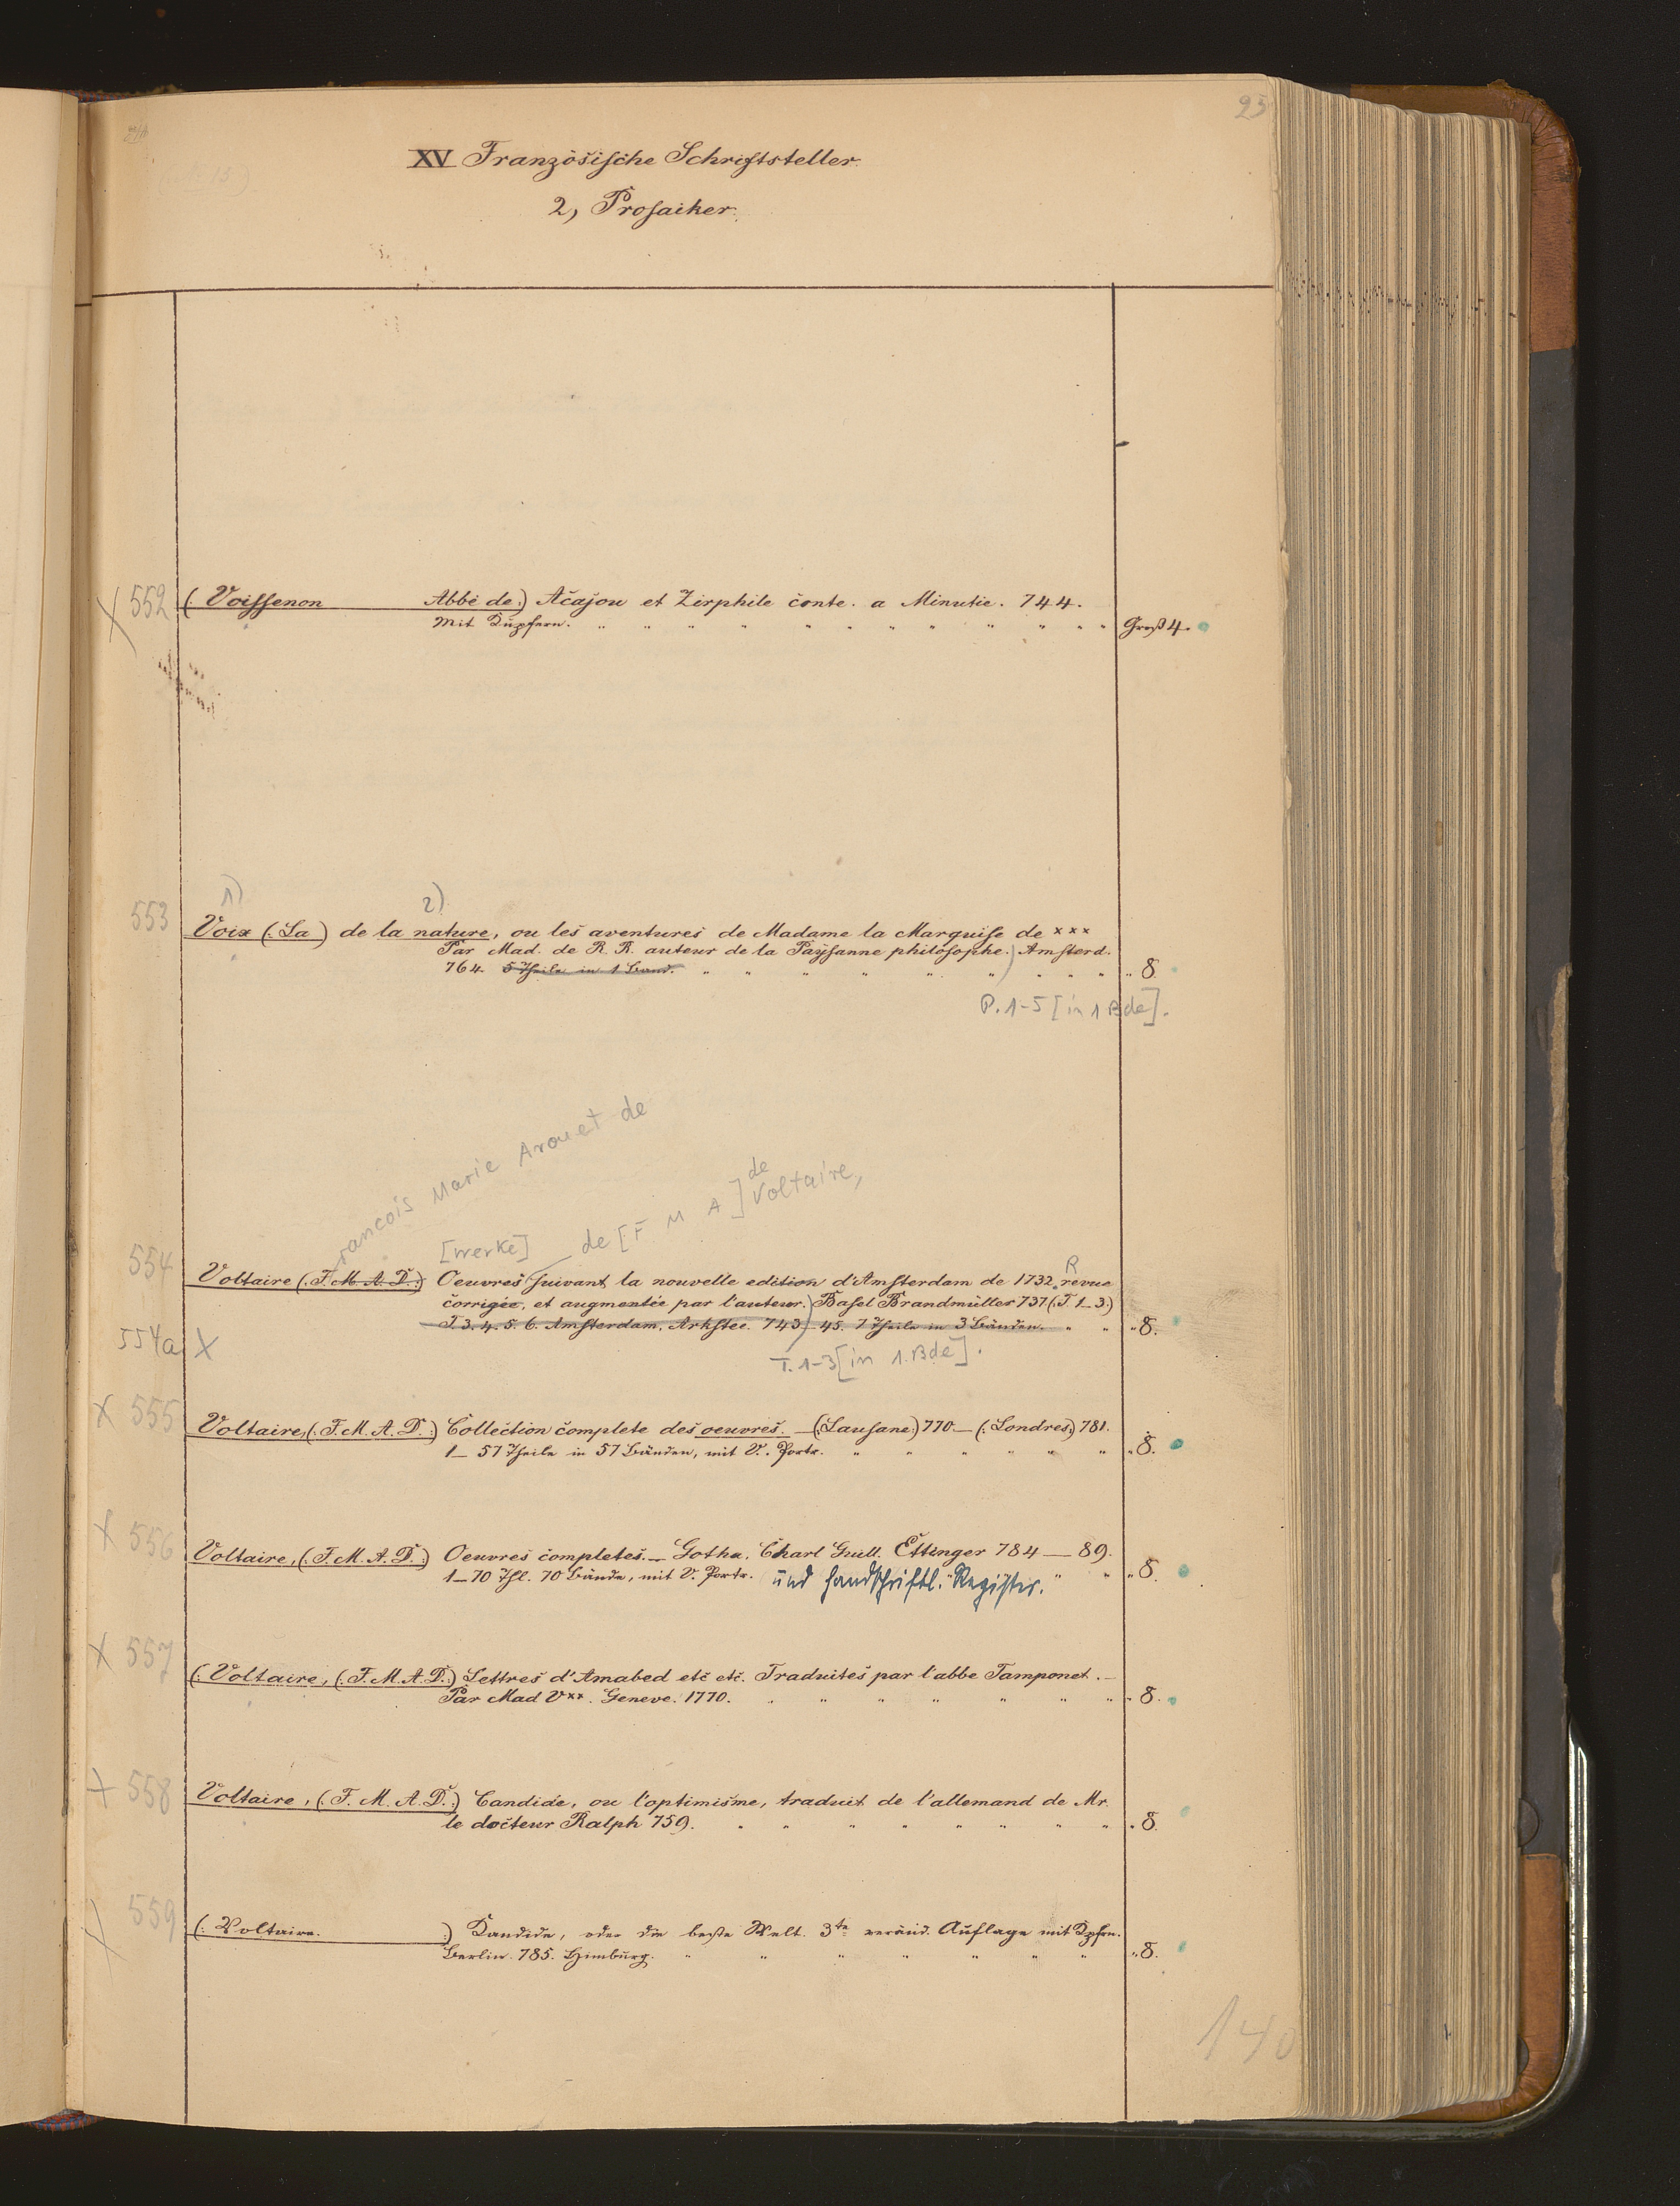 23
XV Französische Schriftsteller.
2, Prosaiker.
X 552 (Voissenon Abbé de:) Acajou et Zirphile conte. a Minutie. 744.
Mit Kupfern. Groß 4.
1) 2)
553 Voix (:La) de la nature, ou les aventures de Madame la Marquise de xxx
Par Mad. de R. R. auteur de la Paysanne philosophe.) Amsterd.
764. 5 Theile in 1 Band. " 8.
P. 1-5 [in 1 Bde].
Francois Marie Arouet de
de
[Werke] de [F M A] Voltaire,
R
554 Voltaire (:F. M. A. D.:) Oeuvres suivant la nouvelle edition d'Amsterdam de 1732. revue
corrigée, et augmentée par l'auteur.) Basel Brandmüller 737 (:T. 1-3:)
T. 3. 4. 5. 6. Amsterdam, Arkstée. 743-45. 7 Theile in 3 Bänden. " 8.
554a X
T. 1-3 [in 1. Bde].
X 555 Voltaire, (:F. M. A. D.:) Collection complete des oeuvres. — (:Lausane:) 770 — (:Londres:) 781.
1—57 Theile in 57 Bänden, mit V. Portr. " 8.
X 556 Voltaire, (:F. M. A. D.:) Oeuvres completes. — Gotha. Charl Guill. Ettinger 784 — 89.
1—70 Thl. 70 Bände, mit V. Portr. und handschriftl. Register. " 8.
X 557 (:Voltaire, (:F. M. A. D.:) Lettres d'Amabed etc etc. Traduites par l'abbe Tamponet. —
Par Mad V xx. Geneve. 1770. " 8.
X 558 Voltaire, (:F. M. A. D.:) Candide, ou l'optimisme, traduit de l'allemand de Mr.
le docteur Ralph 759. " 8.
X 559 (:Voltaire. :) Kandide, oder die beste Welt. 3te veränd. Auflage mit Kpfrn.
Berlin. 785. Himburg. " 8.
140